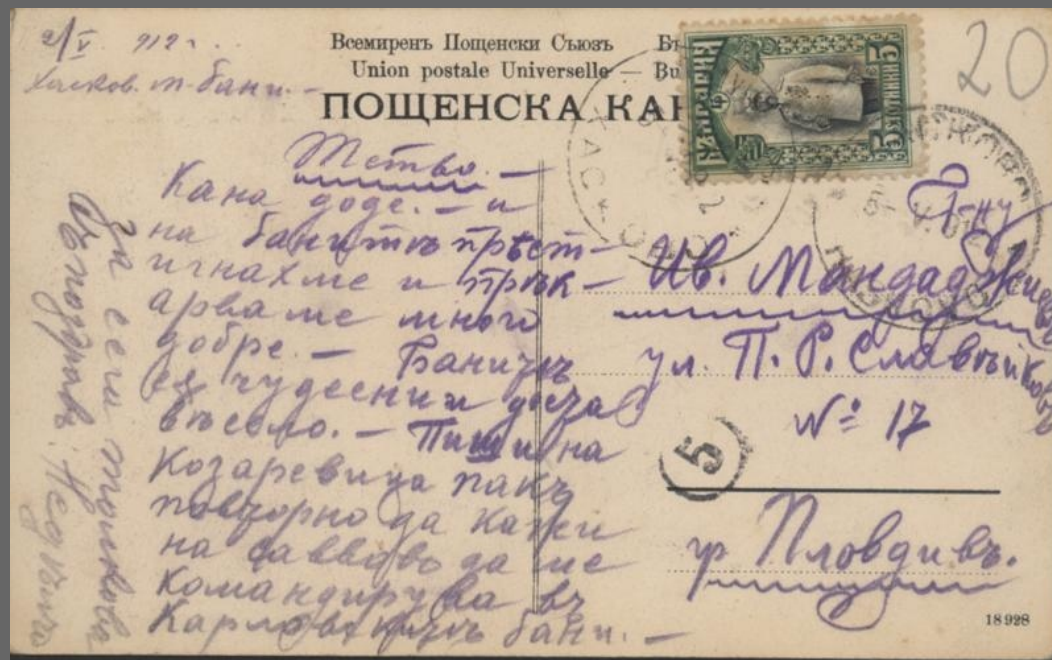 2/V. 912 г.
Хасков. м. бани. –
Всемиренъ Пощенски Съюзъ
Union postale Universelle — Bu
ПОЩЕНСКА КАР
20
БЪЛГАРИЯ
5 СТОТИНКИ 5
ХАСКОВО
Кана доде. – и
на банитѣ прѣст-
игнахме и прѣк-
арваме много
добре. – Банитѣ
сѫ чудесни и доста
вѣсело. – Пиши на
Козаревица пакъ
повторно да кажи
на Саввовъ да ме
командирува въ
Карловскитѣ бани. –
За сега толкова
Г-ну
Ив. Мандаджиевъ
ул. П. Р. Славѣйковъ
№ 17
5
гр Пловдивъ.
18928